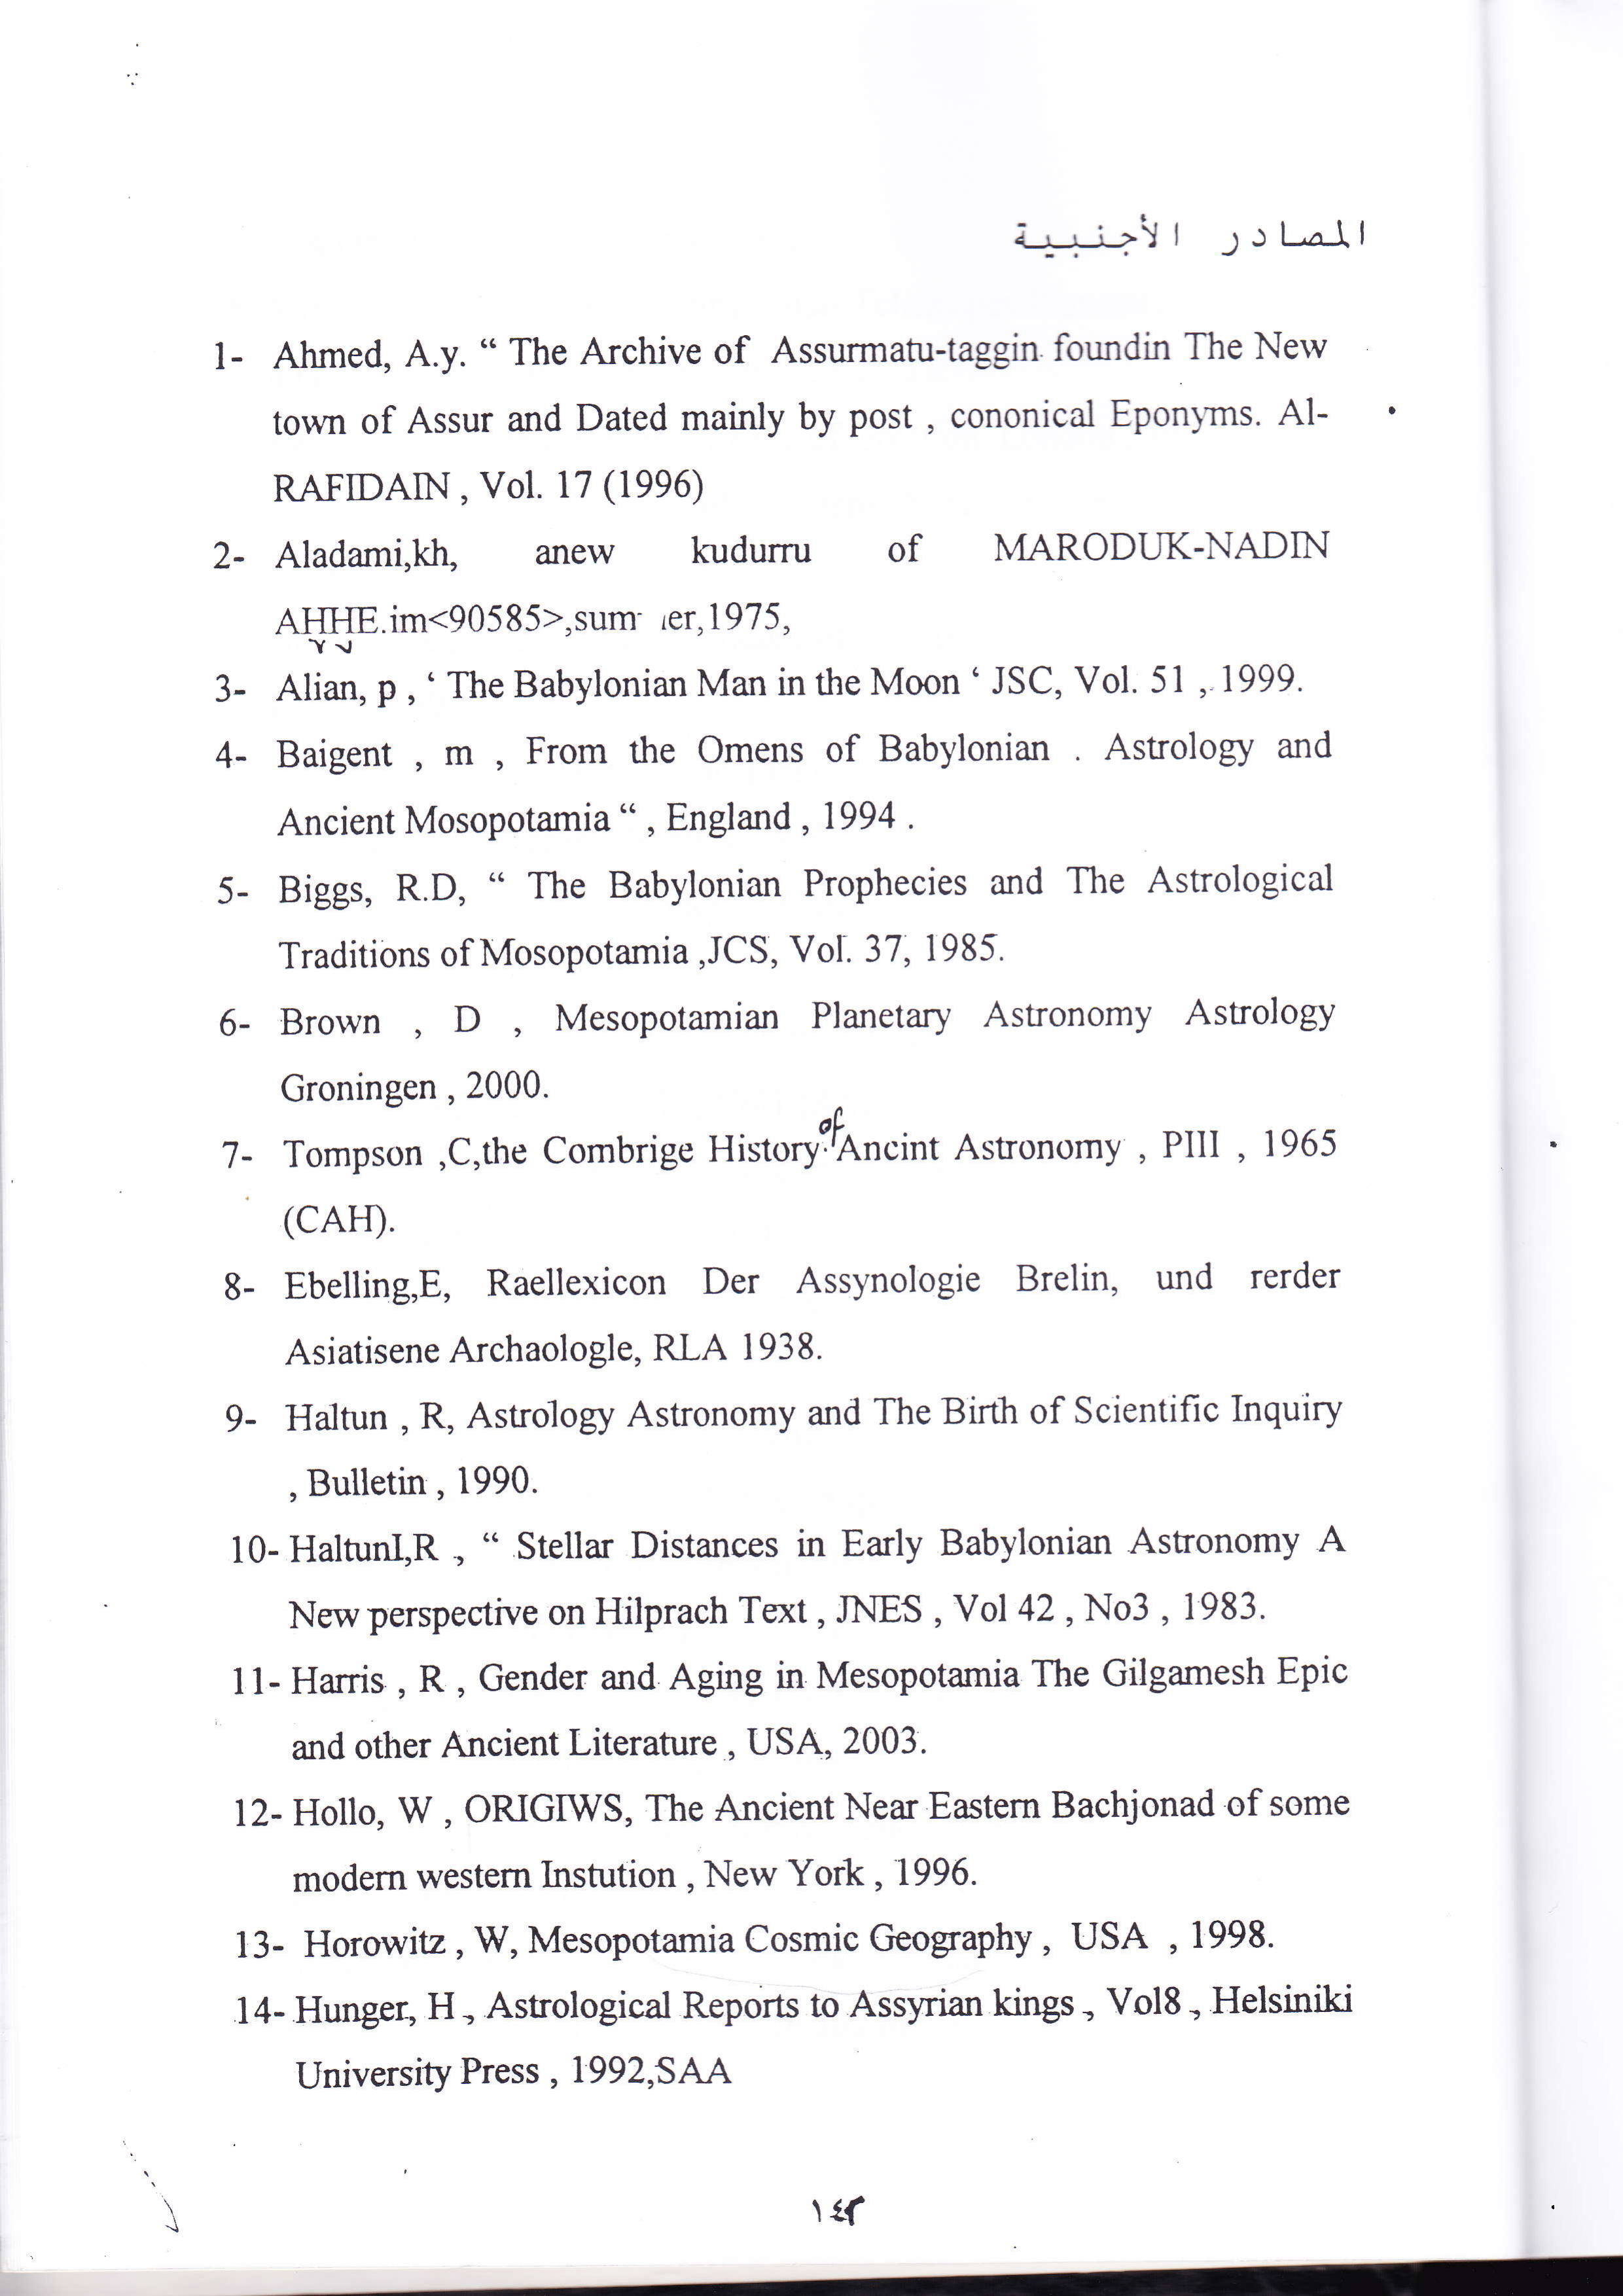 المصادر الأجنبية
1- Ahmed, A.y. “ The Archive of Assurmatu-taggin foundin The New
town of Assur and Dated mainly by post , cononical Eponyms. Al-
RAFIDAIN , Vol. 17 (1996)
2- Aladami,kh, anew kudurru of MARODUK-NADIN
AHHE.im<90585>,sum er,1975,
3- Alian, p , ‘ The Babylonian Man in the Moon ‘ JSC, Vol. 51 , 1999.
4- Baigent , m , From the Omens of Babylonian . Astrology and
Ancient Mosopotamia “ , England , 1994 .
5- Biggs, R.D, “ The Babylonian Prophecies and The Astrological
Traditions of Mosopotamia ,JCS, Vol. 37, 1985.
6- Brown , D , Mesopotamian Planetary Astronomy Astrology
Groningen , 2000.
7- Tompson ,C,the Combrige History of Ancint Astronomy , PIII , 1965
(CAH).
8- Ebelling,E, Raellexicon Der Assynologie Brelin, und rerder
Asiatisene Archaologle, RLA 1938.
9- Haltun , R, Astrology Astronomy and The Birth of Scientific Inquiry
, Bulletin , 1990.
10- HaltunI,R , “ Stellar Distances in Early Babylonian Astronomy A
New perspective on Hilprach Text , JNES , Vol 42 , No3 , 1983.
11- Harris , R , Gender and Aging in Mesopotamia The Gilgamesh Epic
and other Ancient Literature , USA, 2003.
12- Hollo, W , ORIGIWS, The Ancient Near Eastern Bachjonad of some
modern western Instution , New York , 1996.
13- Horowitz , W, Mesopotamia Cosmic Geography , USA , 1998.
14- Hunger, H , Astrological Reports to Assyrian kings , Vol8 , Helsiniki
University Press , 1992,SAA
١٤٢